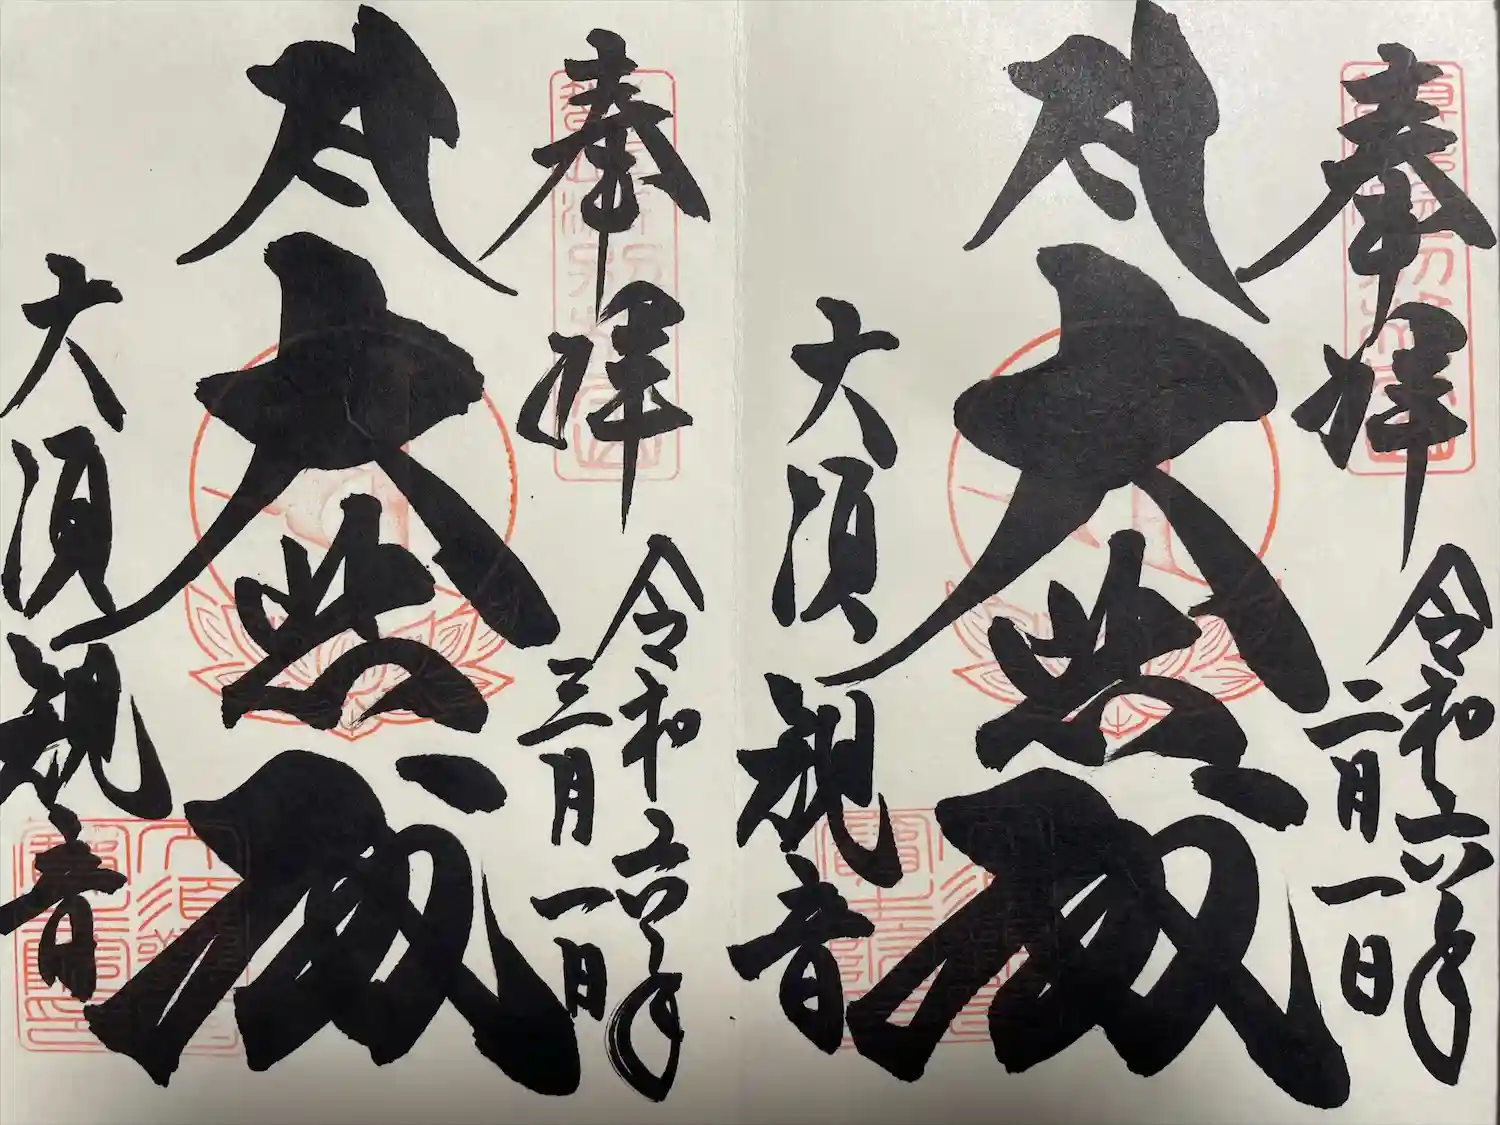 奉拝
令和六年
二月一日
大悲殿
大須観音
奉拝
令和六年
三月一日
大悲殿
大須観音